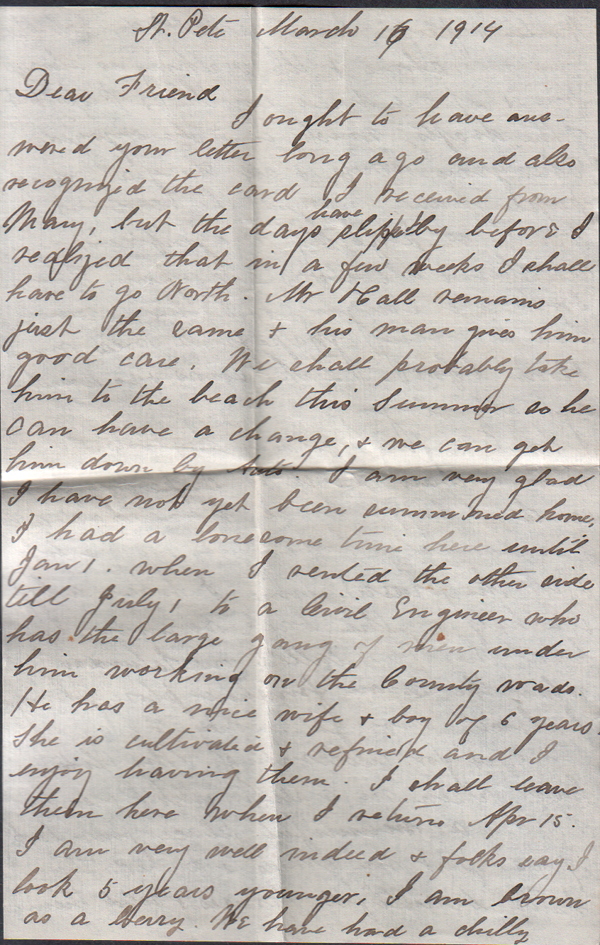 St. Pete March 16 1914
Dear Friend
I ought to have ans-
wered your letter long ago and also
recognized the card I received from
Mary, but the days have slipped by before I
realized that in a few weeks I shall
have to go North. Mr Hall remains
just the same & his man gives him
good care. We shall probably take
him to the beach this Summer so he
can have a change, & we can get
him down by Auto. I am very glad
I have not yet been summoned home,
I had a lonesome time here until
Jan 1. when I rented the other side
till July 1 to a Civil Engineer who
has the large gang of men under
him working on the County roads.
He has a nice wife & boy of 6 years.
She is cultivated & refined and I
enjoy having them. I shall leave
them here when I return Apr 15.
I am very well indeed & folks say I
look 5 years younger, I am brown
as a berry. We have had a chilly